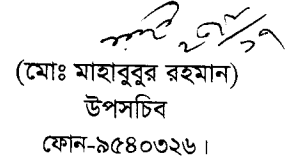 (মোঃ মাহাবুবুর রহমান)
উপসচিব
ফোন-৯৫৪০৩২৬।